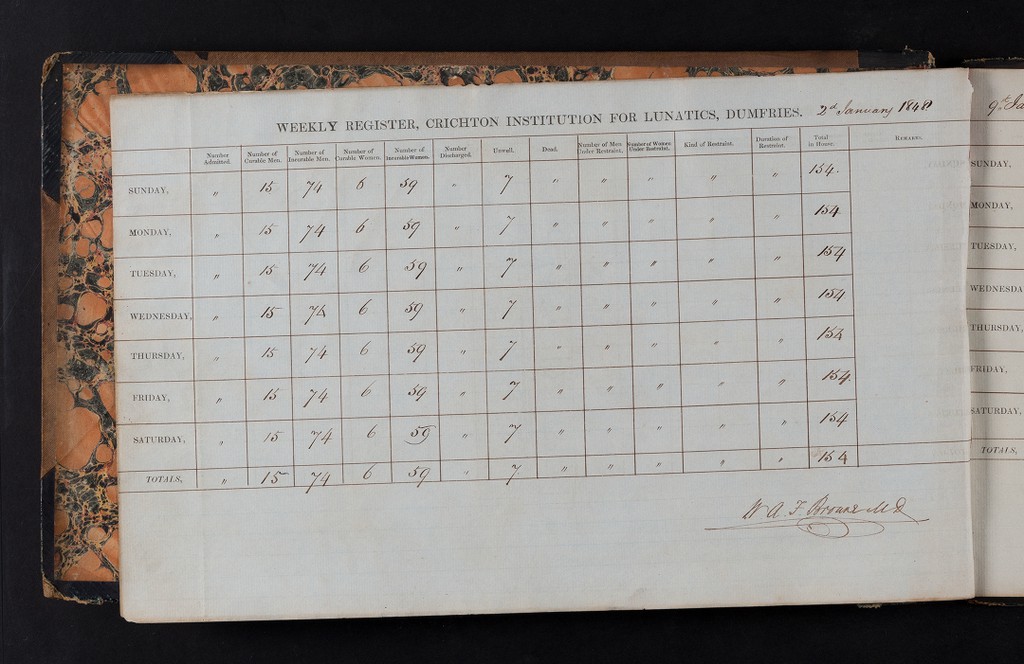 WEEKLY REGISTER, CRICHTON INSTITUTION FOR LUNATICS, DUMFRIES. 2d January 1848
Number Admitted. Number of Curable Men. Number of Incurable Men. Number of Curable Women. Number of Incurable Women. Number Discharged. Unwell. Dead. Number of Men Under Restraint. Number of Women Under Restraint. Kind of Restraint. Duration of Restraint. Total in House. Remarks.
SUNDAY, " 15 74 6 59 " 7 " " " " " 154.
MONDAY, " 15 74 6 59 " 7 " " " " " 154
TUESDAY, " 15 74 6 59 " 7 " " " " " 154
WEDNESDAY, " 15 74 6 59 " 7 " " " " " 154
THURSDAY, " 15 74 6 59 " 7 " " " " " 154
FRIDAY, " 15 74 6 59 " 7 " " " " " 154.
SATURDAY, " 15 74 6 59 " 7 " " " " " 154
TOTALS, " 15 74 6 59 " 7 " " " " " 154
W A F Browne M D
9th Ja
SUNDAY,
MONDAY,
TUESDAY,
WEDNESDA
THURSDAY,
FRIDAY,
SATURDAY,
TOTALS,